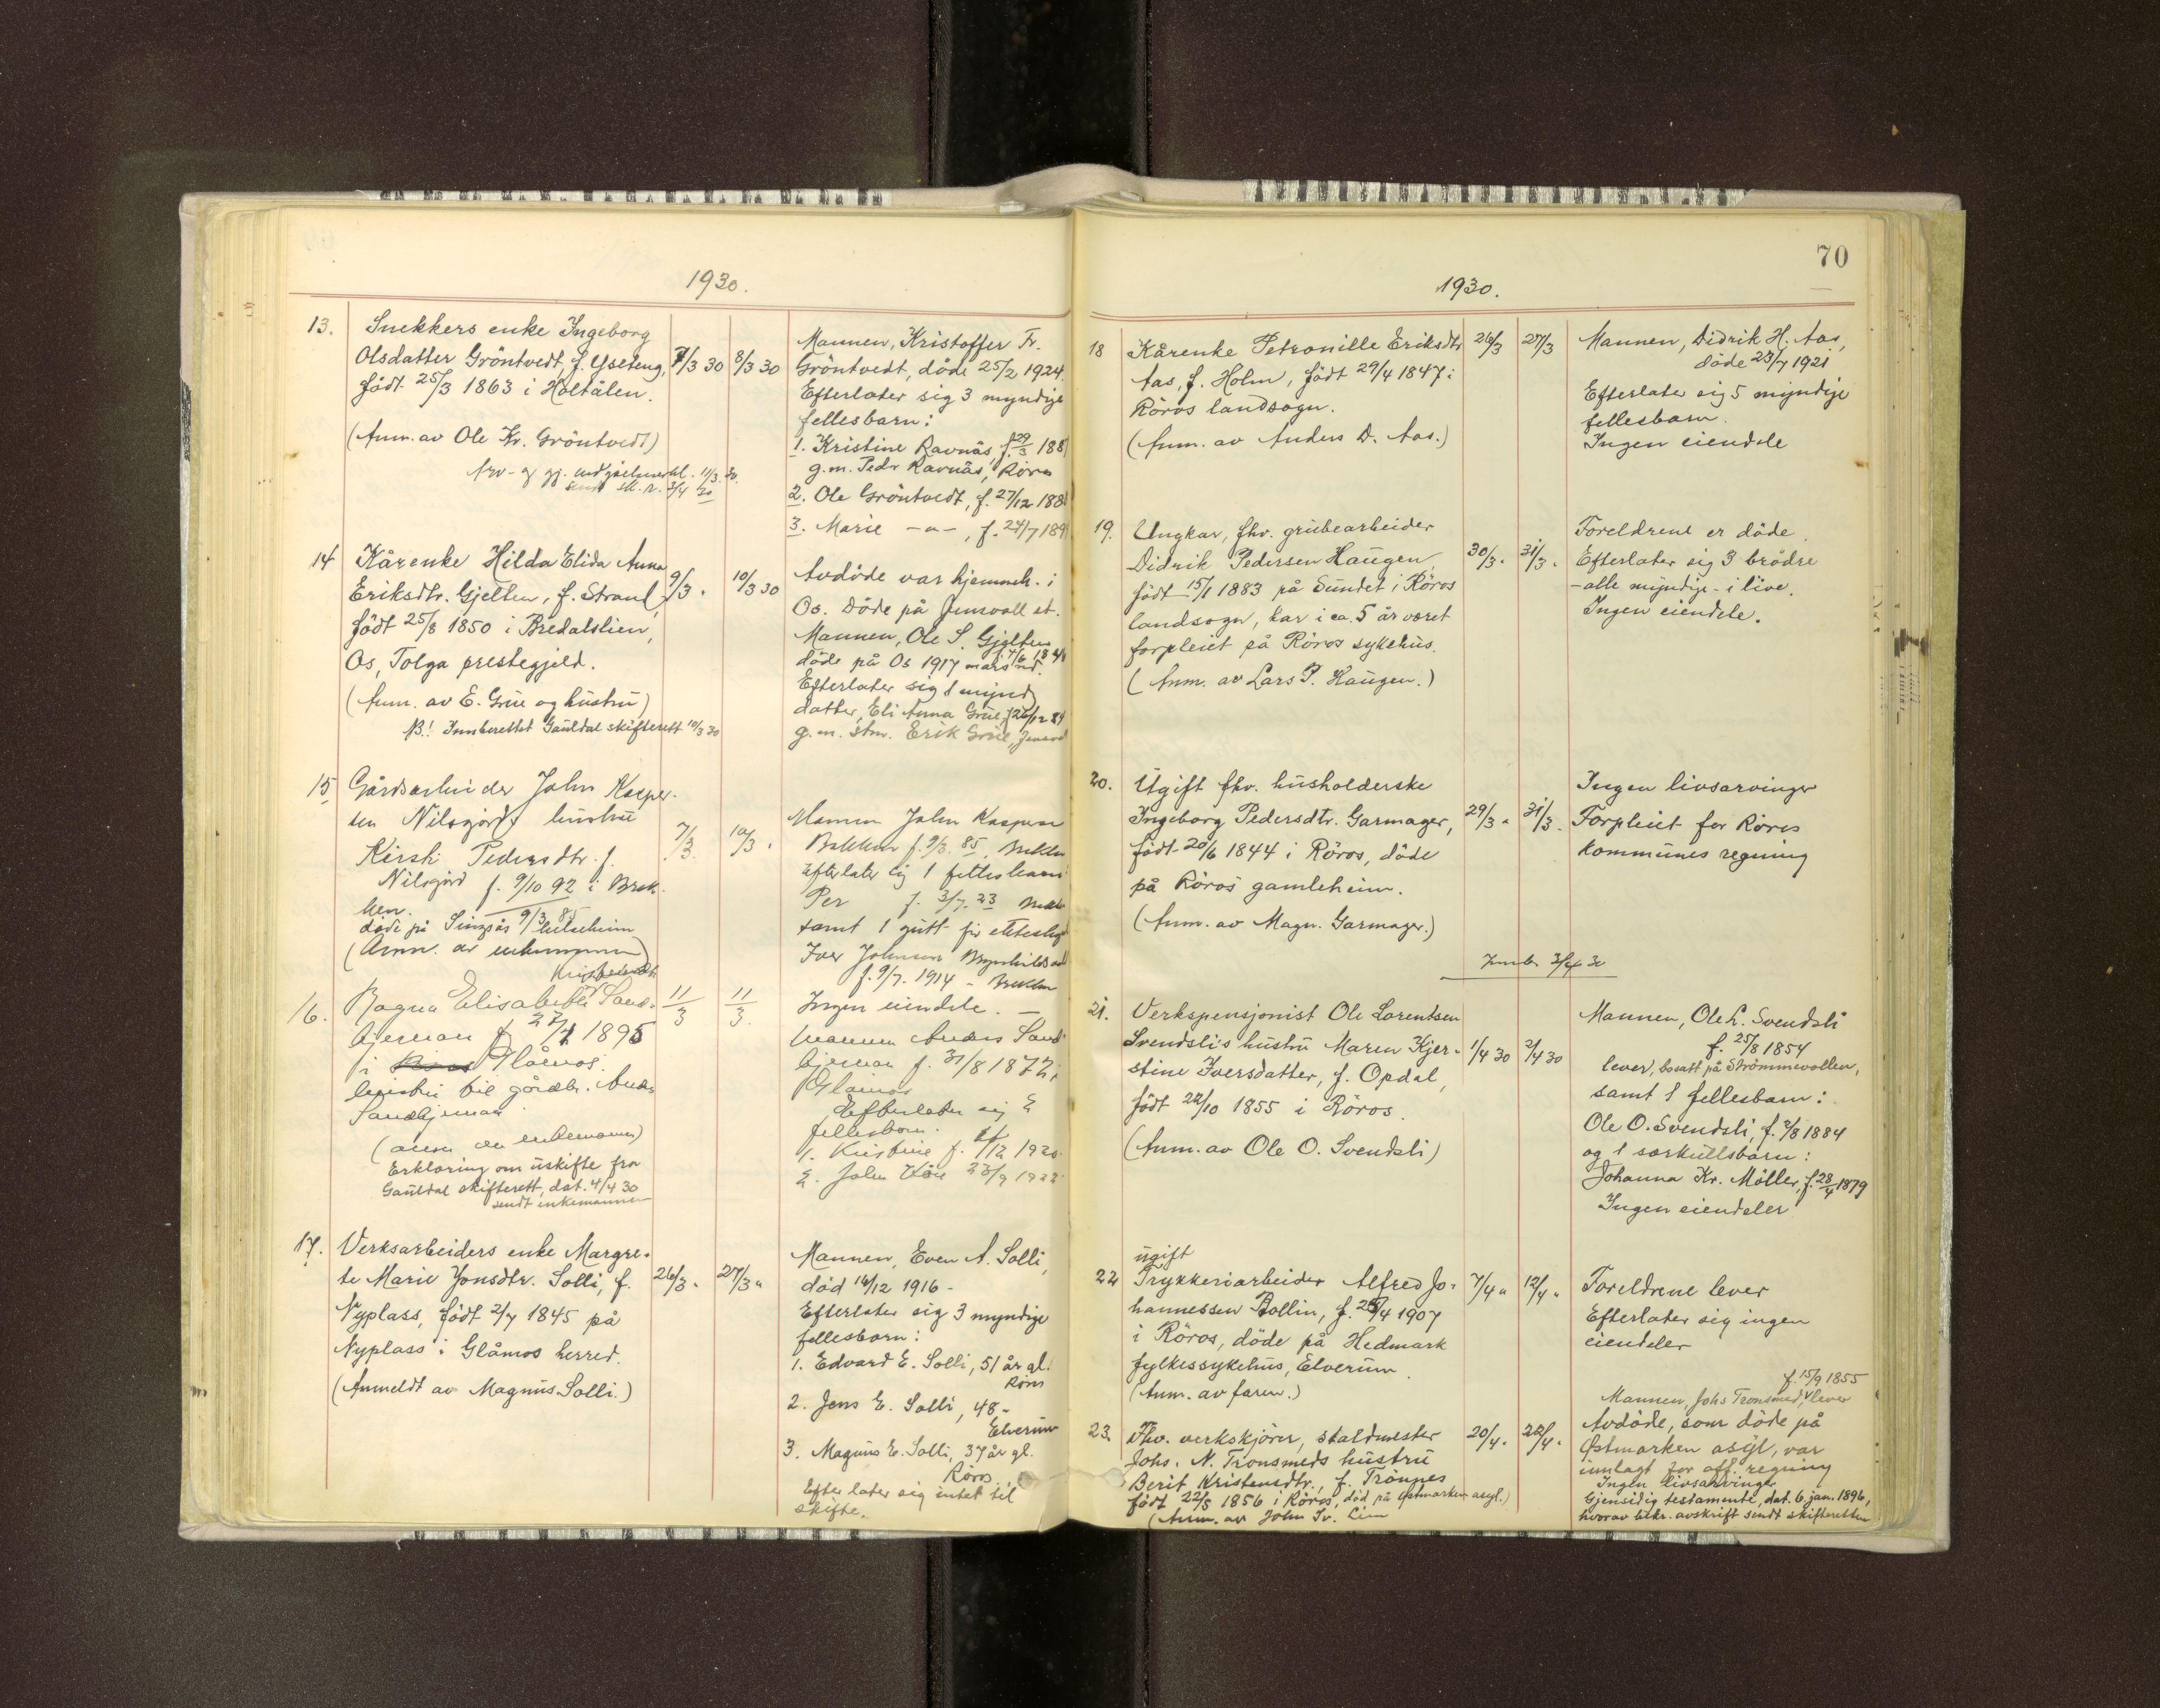 1930.
13.
Snekkers enke Ingeborg
Olsdatter Gröntvedt, f. Ysteng,
født 25/3 1863 i Holtålen.
(Anm. av Ole Kr. Gröntvedt)
7/3 30
8/3 30
Mannen, Kristoffer Tr.
Gröntvedt, døde 25/2 1924.
Efterlater sig 3 myndige
fellesbarn:
1. Kristine Ravnås, f. 29/3 188
g.m. Peder Ravnås, Röros
2. Ole Gröntvedt, f. 27/12 188
3. Marie -"- , f. 24/7 189
14
Kårenke Hilda Elida Anna
Eriksdtr. Gjelten, f. Strand,
født 25/8 1850 i Bredalslien,
Os, Tolga prestegjeld.
(Anm. av E. Grue og hustru)
NB! Innberettet Gauldal skifterett 10/3 30
9/3 "
10/3 30
Avdöde var hjemmeh. i
Os. Döde på Jensvoll st.
Mannen, Ole S. Gjelten
døde på Os 1917 mars
Efterlater sig 1 mynd
datter, Eli Anna Grue, f. 26/12 89
g.m. stm. Erik Grue,
15
Gårdsarbeider John Kasper-
sen Nilsgjords hustru
Kirsti Pedersdtr. f.
Nilsgjord f. 9/10 92 i Brek-
ken.
døde på Singsås
(Anm. av enkemannen)
7/3
10/3 "
Mannen John Kaspersen
f. 9/3. 85, Brekken
efterlater sig 1 fellesbarn
Per f. 3/7. 23
samt 1 gutt før ekteskap
Iver Johnsen
f. 9/7. 1914 - Brekken
16.
Ragna Elisabeth Sand-
1895
i Glåmos.
hustru til gårdbr. Anders
(anm av enkemannen)
Erklæring om uskifte fra
Gauldal skifterett, dat. 4/4 30
sendt enkemannen
11/3
11/3.
Ingen eiendele. —
Mannen Anders Sand-
f. 31/8 1872 i
Glåmos
Efterlater sig 2
fellesbarn.
1. Kristine f. 1/12 1920
2. John 23/9 1922
17.
Verksarbeiders enke Margre-
te Marie Jonsdtr. Solli, f.
Nyplass, født 2/7 1845 på
Nyplass i Glåmos herred.
(Anmeldt av Magnus Solli.)
26/3 "
27/3 "
Mannen, Even A. Solli,
död 16/12 1916 -
Efterlater sig 3 myndige
fellesbarn:
1. Edvard E. Solli, 51 år gl.
Röros
2. Jens E. Solli, 48 -
Elverum
3. Magnus E. Solli, 37 år gl.
Röros
Efterlater sig intet til
skifte.
70
1930.
18
Kårenke Petronille Eriksdtr
Aas, f. Holm, født 29/4 1847 i
Röros landsogn.
(Anm. av Anders D. Aas.)
26/3
27/3
Mannen, Didrik H. Aas,
døde 23/7 1921
Efterlater sig 5 myndige
fellesbarn.
Ingen eiendele
19.
Ungkar, fhv. grubearbeider
Didrik Pedersen Haugen
født 15/1 1883 på Sundet i Röros
landsogn, har i ca. 5 år været
forpleiet på Röros sykehus.
(Anm. av Lars P. Haugen.)
30/3 "
31/3 "
Foreldrene er døde.
Efterlater sig 3 brødre
- alle myndige - i live.
Ingen eiendele.
20.
Ugift fhv. husholderske
Ingeborg Pedersdtr. Garmager,
født 20/6 1844 i Röros, döde
på Röros gamleheim.
(Anm. av Magn. Garmager.)
29/3 "
31/3 "
Ingen livsarvinger
Forpleiet for Röros
kommunes regning
Innber. 3/4 30
21.
Verkspensjonist Ole Lorentsen
Svendsli's hustru Maren Kjer-
stine Iversdatter, f. Opdal,
født 22/10 1855 i Röros.
(Anm. av Ole O. Svendsli)
1/4 30
2/4 30
Mannen, Ole L. Svendsli
f. 25/8 1854
lever, bosatt på Strömmevollen,
samt 1 fellesbarn:
Ole O. Svendsli, f. 2/8 1884
og 1 særkullsbarn:
Johanna Kr. Möller, f. 28/4 1879
Ingen eiendeler
22
ugift
Trykkeriarbeider Alfred Jo-
hannessen Bollin, f. 25/4 1907
i Röros, döde på Hedmark
fylkessykehus, Elverum.
(Anm. av faren.)
7/4 "
12/4 "
Foreldrene lever
Efterlater sig ingen
eiendeler
23.
Fhv. verkskjörer, staldmester
Johs. N. Tronsmeds hustru
Berit Kristensdtr., f. Trönnes
født 22/5 1856 i Röros, død på Østmarken asyl.)
(Anm. av John Tr. Lien
20/4 "
22/4 "
f. 15/9 1855
Mannen, Johs Tronsmed, lever
Avdöde, som döde på
Østmarken asyl, var
innlagt for off. regning
Ingen livsarvinger
Gjensidig testamente, dat. 6. jan. 1896,
hvorav bekr. avskrift sendt skifteretten